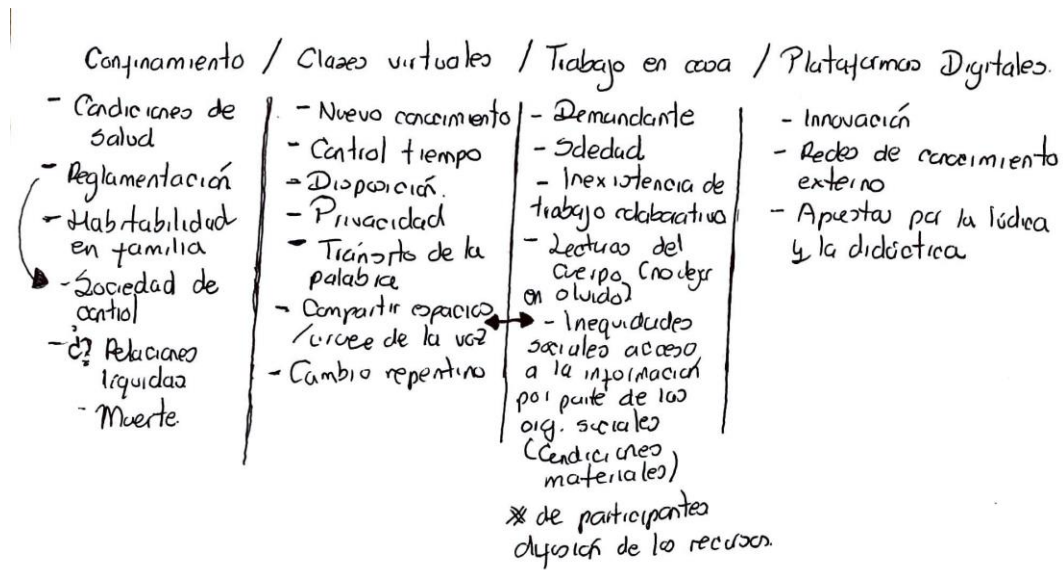 Confinamiento / Clases virtuales / Trabajo en casa / Plataformas Digitales.
- Condiciones de
salud
- Reglamentación
- Habitabilidad
en familia
- Sociedad de
control
- ¿? Relaciones
líquidas
- Muerte.
- Nuevo conocimiento
- Control tiempo
- Disposición.
- Privacidad
- Tránsito de la
palabra
- Compartir espacios
/ cruce de la voz
- Cambio repentino
- Demandante
- Soledad
- Inexistencia de
trabajo colaborativo
- Lecturas del
cuerpo (no dejar
en olvido)
- Inequidades
sociales acceso
a la información
por parte de las
org. sociales
(Condiciones
materiales)
* de participantes
de los recursos.
- Innovación
- Redes de conocimiento
externo
- Apuestas por la lúdica
y la didáctica